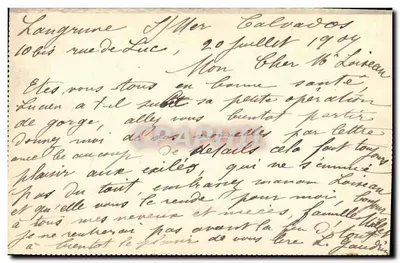 Langrune S/Mer Calvados
10 bis rue de Luc, 20 juillet 1904
Mon Cher Mr Loiseau
Etes vous tous en bonne santé
Lucien a t-il subit sa petite opération
de gorge, allez vous bientot partir
donnez moi de vos par lettre
avec beaucoup de détails cela fait toujours
plaisir aux exilés, qui ne s'ennuie
pas du tout, embrassez maman Loiseau
et qu'elle vous le rende pour moi, bonjour
à tous mes neveux et nièces, famille
je ne rentrerai pas avant la fin d'Aout
à bientot le plaisir de vous lire